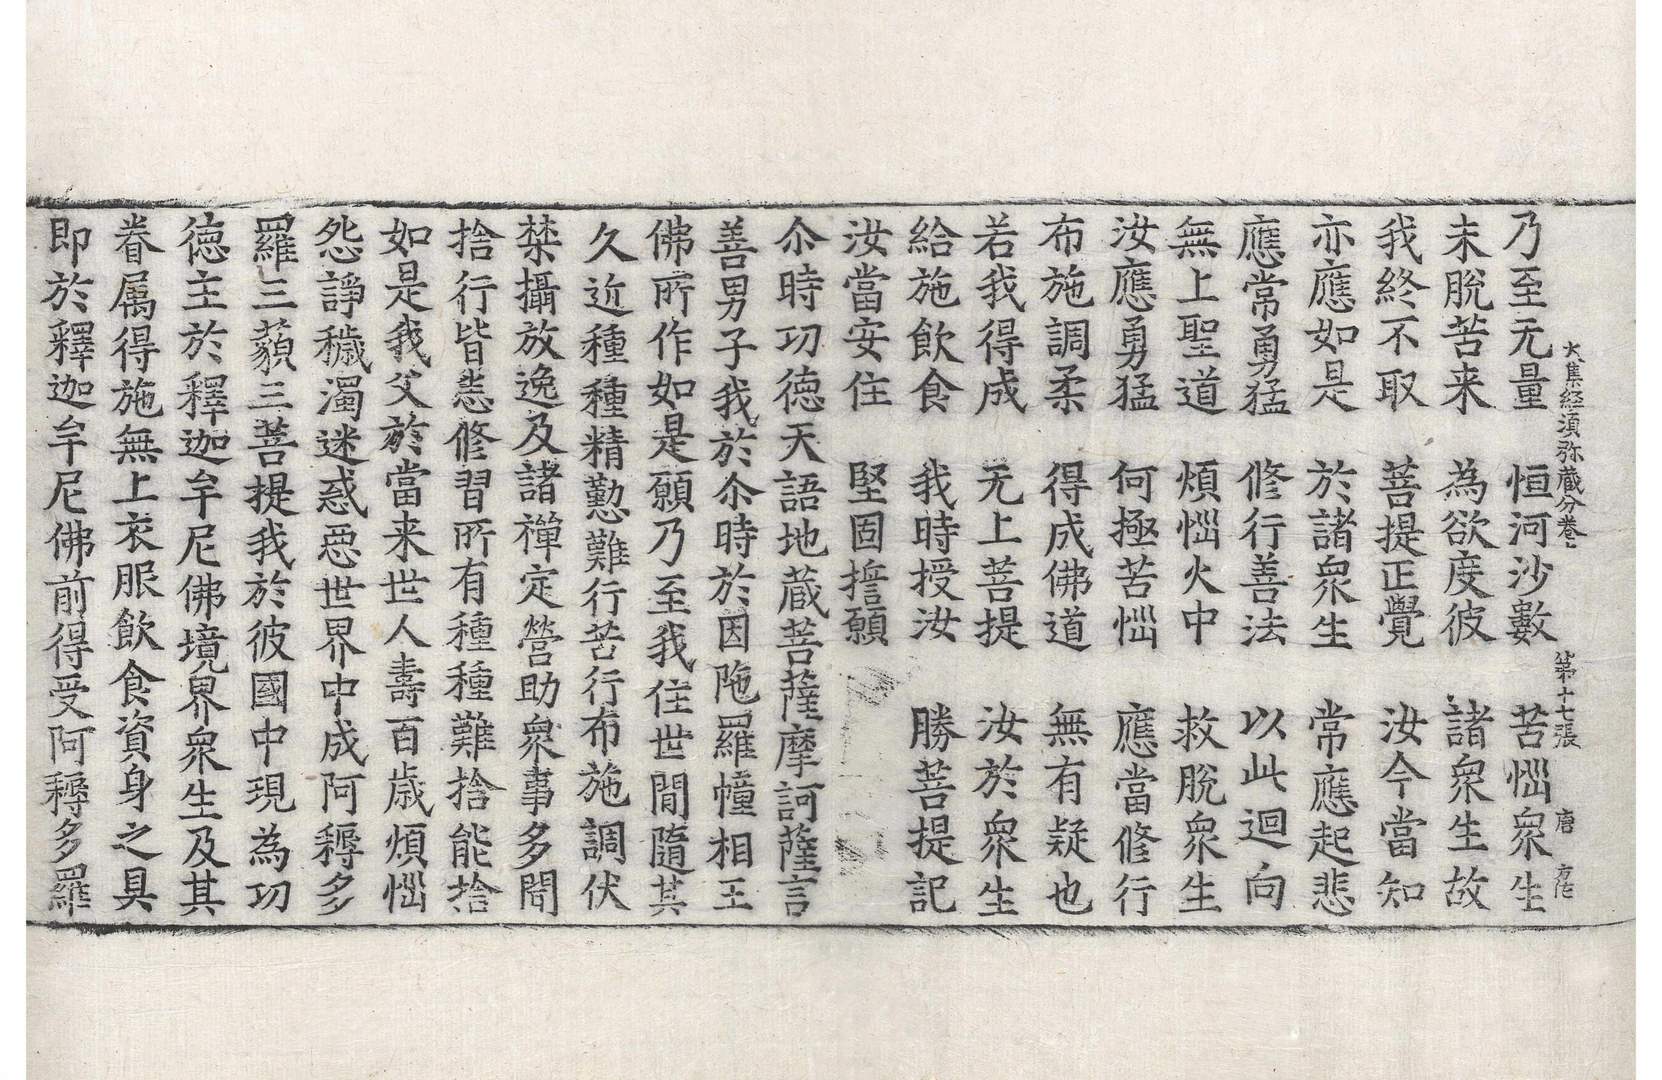 大集経湏弥蔵分卷七　第十七張　唐　方作
乃至无量　恒河沙數　苦惱衆生
未脫苦来　為欲度彼　諸衆生故
我終不取　菩提正覺　汝今當知
亦應如是　於諸衆生　常應起悲
應常勇猛　修行善法　以此迴向
無上聖道　煩惱火中　救脫衆生
汝應勇猛　何極苦惱　應當修行
布施調柔　得成佛道　無有疑也
若我得成　无上菩提　汝於衆生
給施飲食　我時授汝　勝菩提記
汝當安住　堅固擔願
尒時功德天語地蔵菩薩摩訶薩言
善男子我於尒時於因陁羅幢相王
佛所作如是願乃至我住世間隨其
久近種種精懃難行苦行布施調伏
禁攝放逸及諸禪定營助衆事多聞
捨行皆悉修習所有種種難捨能捨
如是我父於當来世人壽百歳煩惱
怨諍穢濁迷惑惡世界中成阿耨多
羅三藐三菩提我於彼國中現為功
德主於釋迦牟尼佛境界衆生及其
眷属得施無上衣服飲食資身之具
即於釋迦牟尼佛前得受阿耨多羅